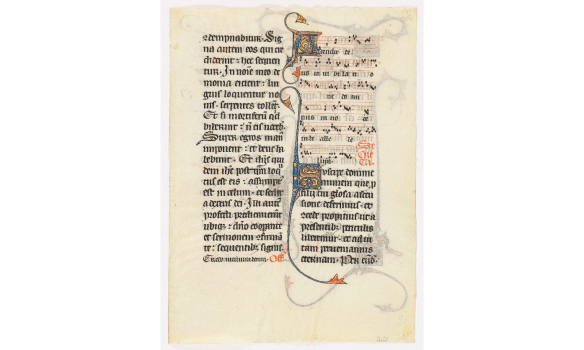 ↄdempnabitur. Sig
na autem eos qui cre
diderint : hec sequen
tur. In noīe meo de
monia eicient : lin
guis loquentur no
uis · serpentes tollēt
Et si mortiferū qd
biberint : n̄ eis nocebit
Super egros man⁹
imponent : et bene ha
bebunt. Et dn̄s qui
dem postqm locut⁹
est eis : assumpt⁹
est in celum · et sedet
a dextris dei. Illi aut̄
profecti predicauerunt
ubiq; dño cooperante
et sermonem confirman
te : sequentibz signis.
Off.
Ascendit de
us in iubilatio
Secreta
Suscipe domine
munera que p
filii tui gl̄osa ascen
sione deferimus · et cō
cede propitius ut a
presentibz periculis
liberemur · et ad ui
tam perueniamus
eternam · Per eūd̄.